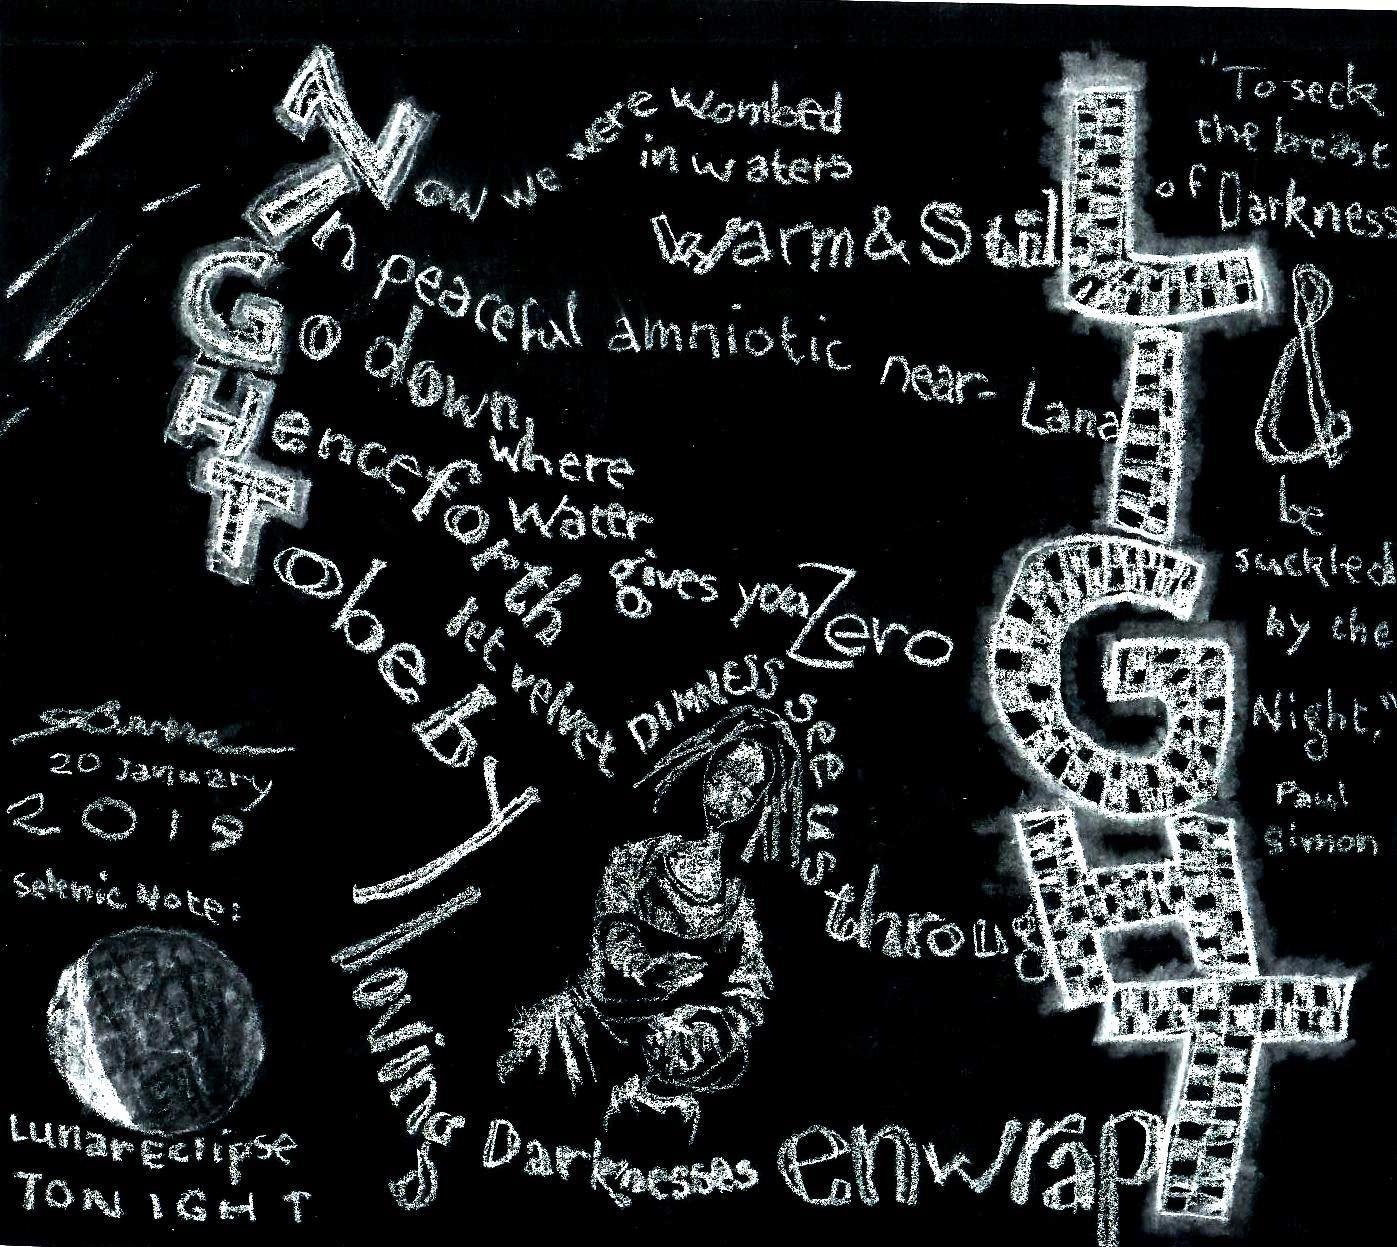 Now we were wombed
in waters
Warm & StilL
In peaceful amniotic near-LanaI
Go down
where
Water
gives you Zero G
Henceforth
let velvet DIMNESS see us througH
To be bY loving Darknesses enwrapT
"To seek
the breast
of Darkness
&
be
suckled
by the
Night,"
Paul
Simon
20 January
2019
Selenic Note:
Lunar Eclipse
TONIGHT